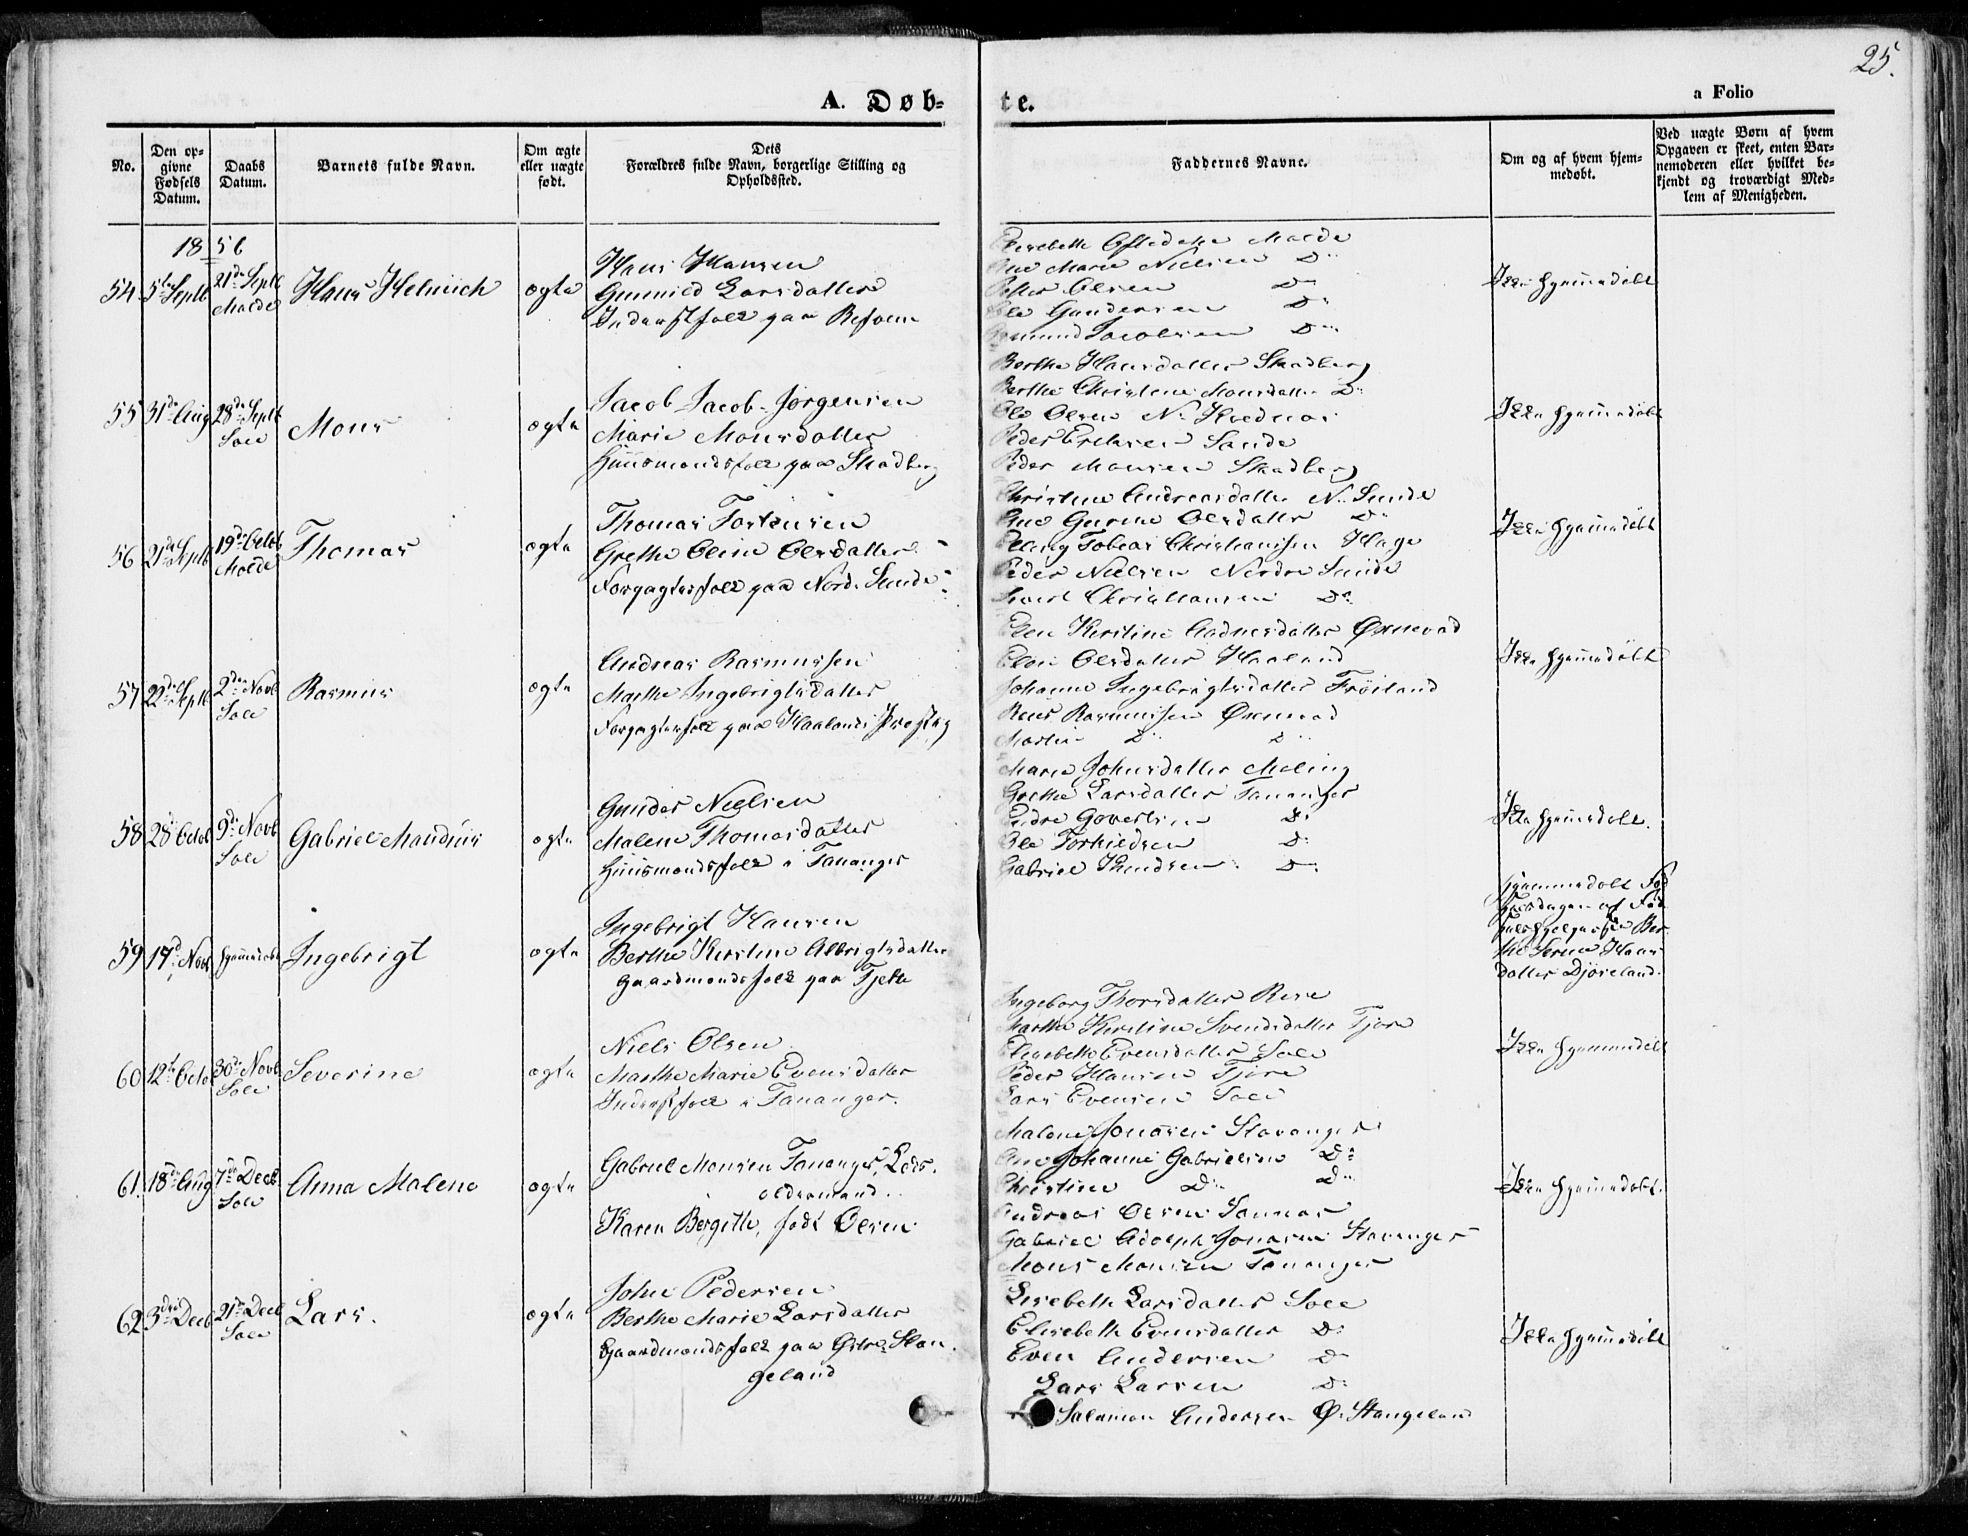 25.
A. Døb-
te.
a Folio
No.
Den op-
givne
Fødsels
Datum.
Daabs
Datum.
Barnets fulde Navn.
Om ægte
eller uægte
født.
Dets
Forældres fulde Navn, borgerlige Stilling og
Opholdssted.
Faddernes Navne.
Om og af hvem hjem-
medøbt.
Ved uægte Børn af hvem
Opgaven er skeet, enten Bar-
nemoderen eller hvilket be-
kjendt og troværdigt Med-
lem af Menigheden.
1856
54 5te Septb 21de Septb Molde Hans Helmich ægte
Hans Hansen
Gunnild Larsdatter
Inderstfolk paa Refsnes
Elisabeth Molde
Ane Marie Nielsen Do
Peder Olsen Do
Ole Gundersen Do
Jacobsen Do
Ikke hjemmedøbt
55 31te Aug 28de Septb Sole Mons ægte
Jacob Jacob. Jørgensen
Marie Monsdatter
Huusmandsfolk paa Skadberg
Berthe Hansdatter Skadberg
Berthe Christine Monsdatter Do
Ole Olsen N. Kvednas
Peder Eriksen Sande
Peder Monsen Skadberg
Ikke hjemmedøbt
56 21de Septb 19de Octob Molde Thomas ægte
Thomas Torkensen
Grethe Oline Olsdatter
Forpagterfolk paa Nord. Sunde
Christine Andreasdatter N. Sunde
Ane Gurine Olsdatter Do
Elling Tobias Christiansen Hage
Peder Nielsen Nordre Sunde
Sivert Christiansen Do
Ikke hjemmedøbt
57 22de Septb 2den Novb Sole Rasmus ægte
Andreas Rasmussen
Marthe Ingebrigtsdatter
Forpagterfolk paa Haalands Presteg
Elen Kirstine Aadnesdatter Øxnevad
Elen Olsdatter Haaland
Johanne Ingebrigtsdatter Frøiland
Reus Rasmussen Øxnevad
Martin Do Do
Ikke hjemmedøbt
58 28 Octob 9de Novb Sole Gabriel Mandius ægte
Gunder Nielsen
Malene Thomasdatter
Huusmandsfolk i Tananger
Maren Johnsdatter Meling
Grethe Larsdatter Tananger
Endre Govertsen Do
Ole Torkildsen Do
Gabriel Knudsen Do
Ikke hjemmedøbt.
59 17de Novb hjemmedøbt Ingebrigt ægte
Ingebrigt Hansen
Berthe Kirstine Albrigtsdatter
Gaardmandsfolk paa Tjelta
Hjemmedøbt Fød
selsdagen af Fød
selshjelpersken Ber
the Serine Hans
datter Djøseland.
60 12te Octob 30te Novb Sole Severine ægte
Niels Olsen
Marthe Marie Evensdatter
Inderstfolk i Tananger.
Ingeborg Thorsdatter Rege
Marthe Kirstine Svendsdatter Tjora
Elisabeth Evensdatter Sole
Peder Hansen Tjora
Lars Evensen Sole
Ikke hjemmedøbt
61. 18de Aug 7de Decb Sole Anna Malene ægte
Gabriel Monsen Tananger, Lods-
oldermand.
Karen Bergitte, født Olsen
Malene Jonasen Stavanger
Ane Johanne Gabrielsen Do
Christine Do Do
Andreas Olsen Sannas
Gabriel Adolph Jonasen Stavanger
Mons Monsen Tananger
Ikke hjemmedøbt.
62 3die Decb 21de Decb Sole Lars. ægte
John Pedersen
Berthe Marie Larsdatter
Gaardmandsfolk paa Østre Stan
geland
Lisebeth Larsdatter Sole
Elisebeth Evensdatter Do
Even Andersen Do
Lars Larsen Do
Salamon Andersen Ø. Stangeland
Ikke hjemmedøbt